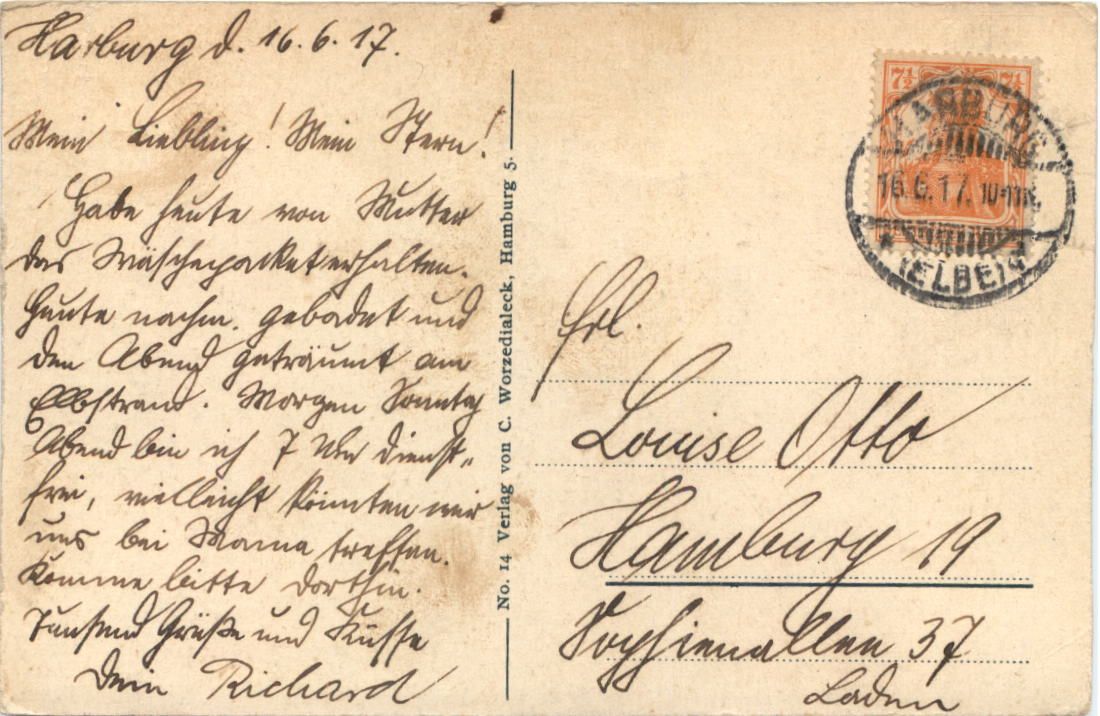 Harburg d. 16.6.17.
Mein Liebling! Mein Stern!
Habe heute von Mutter
das Wäschepacket erhalten.
Heute nachm. gebadet und
den Abend geträumt am
Elbstrand. Morgen Sonntag
Abend bin ich 7 Uhr dienst„
frei, vielleicht könnten wir
uns bei Mama treffen.
Komme bitte dorthin.
Tausend Grüße und Küsse
Dein Richard
No. 14 Verlag von C. Worzedialeck, Hamburg 5.
7½ 7½
HARBURG
16.6.17. 10-11
(ELBE)
Frl.
Louise Otto
Hamburg 19
Sophienallee 37
Laden